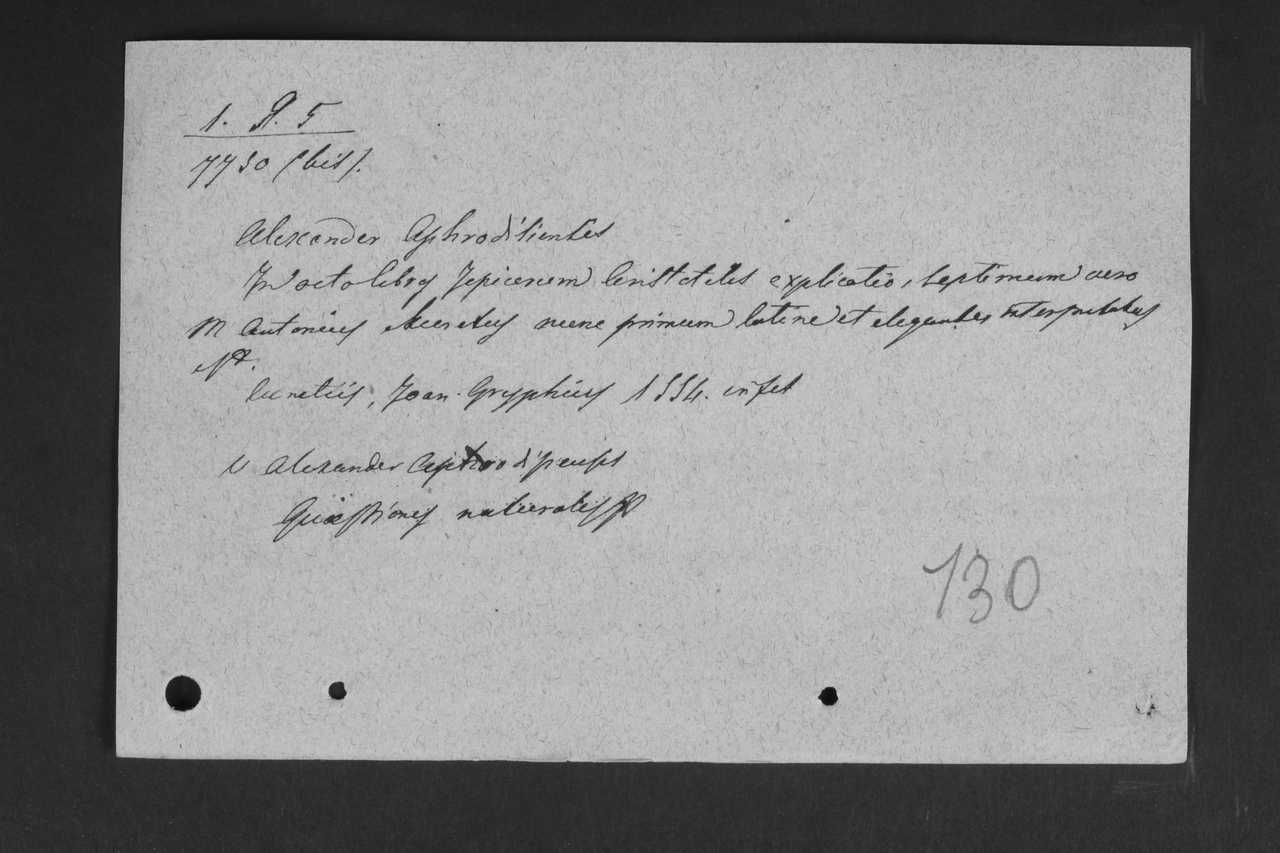 1. A. 5
7730 (bis).
Alexander Aphrodisientes
In octo libros Topicorum Aristotelis explicatio, septimum vero
M Antonius Muretus nunc primum latine et eleganter interpretatus
est.
Venetiis, Joan. Gryphius 1554. in fol
V Alexander Aphrodisensis
Quæstiones naturales
130